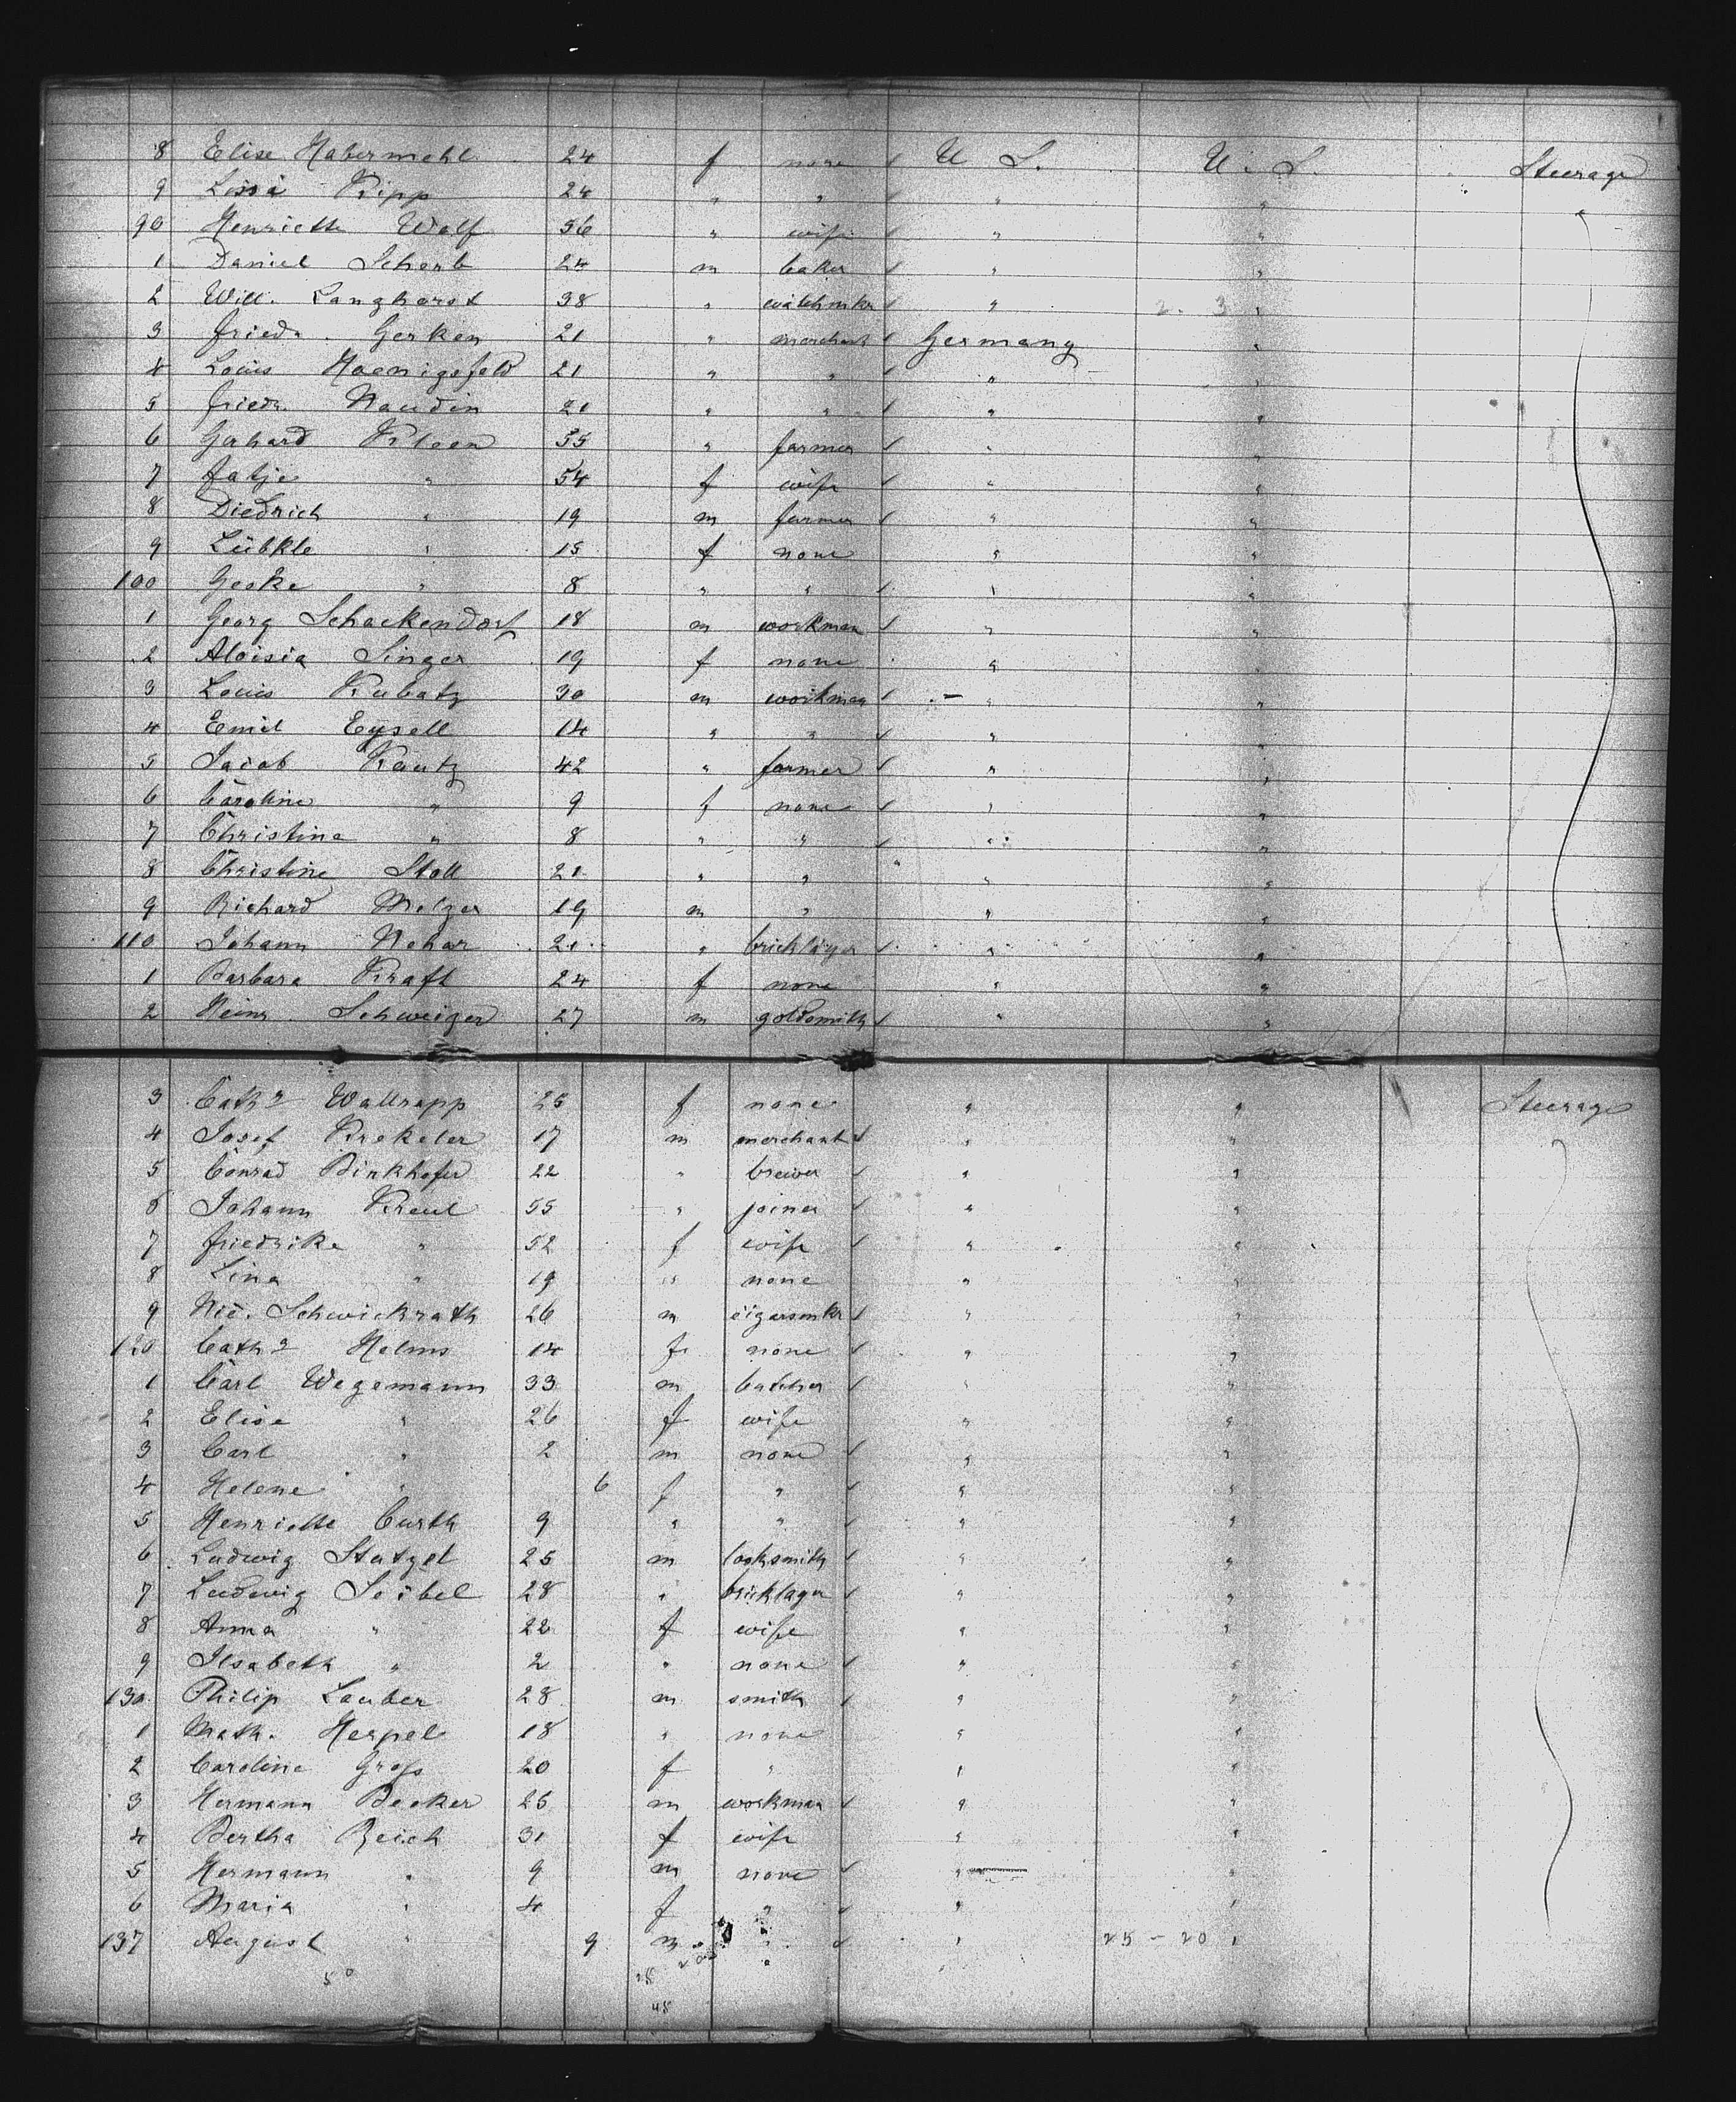 8 Elise Habermehl 24 f none U S. U. S. Steerage
9 Lissa Kipp 24 " " " "
90 Henriette Wolf 56 " wife " "
1 Daniel Scherb 24 m baker " "
2 Will. Langhorst 38 " watchmkr " 2. 3 "
3 Friedr. Gerken 21 " merchant Germany "
4 Louis Hoenigsfeld 21 " " " "
5 Friedr. Naudin 21 " " " "
6 Gerhard Kleen 55 " farmer " "
7 Fatje " 54 f wife " "
8 Diedrich " 19 m farmer " "
9 Lübkle " 15 f none " "
100 Geske " 8 " " " "
1 Georg Schackendorf 18 m workman " "
2 Aloisia Singer 19 f none " "
3 Louis Kubatz 30 m workman " "
4 Emil Eysell 14 " " " "
5 Jacob Kautz 42 " farmer " "
6 Caroline " 9 f none " "
7 Christina " 8 " " " "
8 Christine Stoll 21 " " " "
9 Richard Melzer 19 m " " "
110 Johann Nehar 21 " bricklayer " "
1 Barbara Kraft 24 f none " "
2 Heinr. Schweizer 27 m goldsmith " "
3 Catha Wallrapp 25 f none " " Steerage
4 Josef Krekeler 17 m merchant " "
5 Conrad Binkhofer 22 " brewer " "
6 Johann Kreul 55 " joiner " "
7 Friedrike " 52 f wife " "
8 Lina " 19 " none " "
9 Nic. Schwickrath 26 m cigarsmkr " "
120 Catha Helms 14 f none " "
1 Carl Wegemann 33 m butcher " "
2 Elise " 26 f wife " "
3 Carl " 2 m none " "
4 Helene " 6 f " " "
5 Henriette Curth 9 " " " "
6 Ludwig Statzel 25 m locksmith " "
7 Ludwig Seibel 28 " bricklayer " "
8 Anna " 22 f wife " "
9 Ilsabeth " 2 " none " "
130 Philip Lauber 28 m smith " "
1 Math. Herpel 18 " none " "
2 Caroline Gross 20 f " " "
3 Hermann Becker 25 m workman " "
4 Bertha Reich 31 f wife " "
5 Hermann " 9 m none " "
6 Maria " 4 f " " "
137 August " 9 m " " 25 - 20 "
50
48